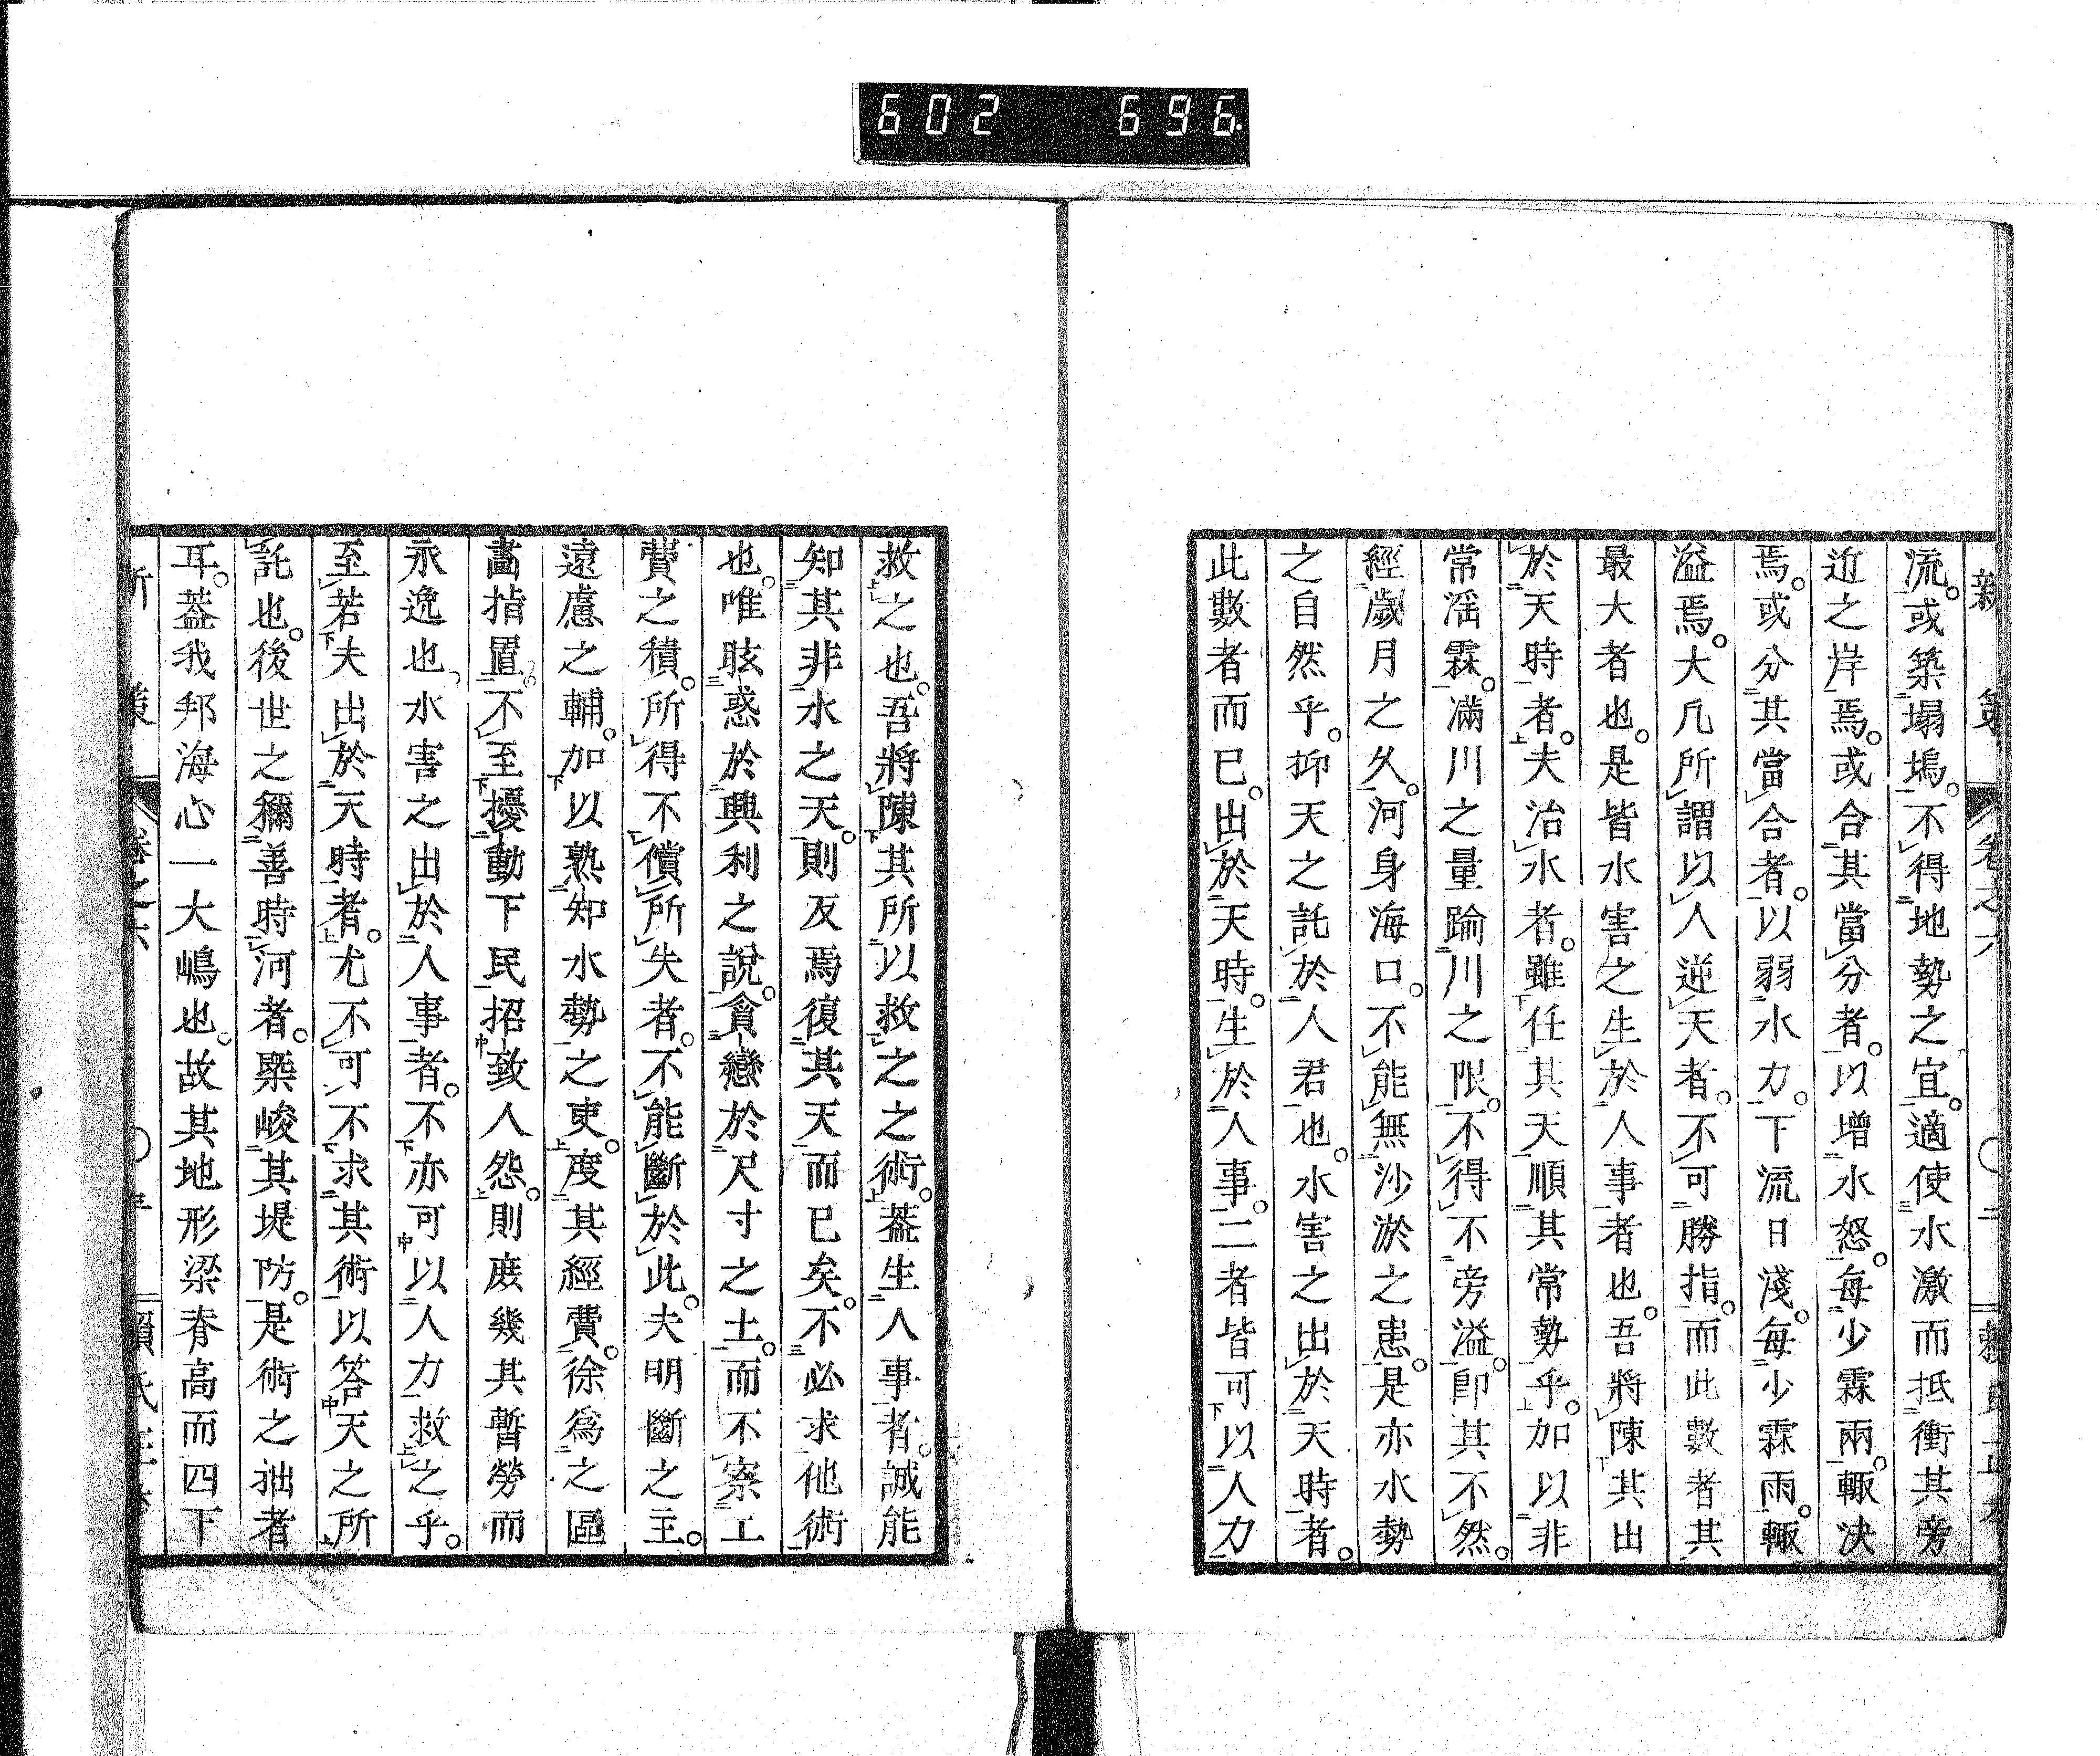 602 696
新策 卷之六 ○二
流。或築塌塢。不得地勢之宜。適使水激而抵衝其旁
近之岸焉。或合其當分者。以增水怒。每少霖雨。輙決
焉。或分其當合者。以弱水力。下流日淺。每少霖雨。輙
溢焉。大凡所謂以人逆天者。不可勝指。而此數者其
最大者也。是皆水害之生於人事者也。吾將陳其出
於天時者。夫治水者。雖任其天順其常勢乎。加以非
常滛霖。滿川之量踰川之限。不得不旁溢。卽其不然。
經歲月之久。河身海口。不能無沙淤之患。是亦水勢
之自然乎。抑天之託於人君也。水害之出於天時者。
此數者而已。出於天時。生於人事。二者皆可以人力
救之也。吾將陳其所以救之之術。葢生人事者。誠能
知其非水之天。則反焉復其天而已矣。不必求他術
也。唯眩惑於興利之說。貪戀於尺寸之土。而不察工
費之積。所得不償所失者。不能斷於此。夫明斷之主。
遠慮之輔。加以熟知水勢之吏。度其經費。徐爲之區
畵指置。不至擾動下民招致人怨。則庶幾其暫勞而
永逸也、水害之出於人事者。不亦可以人力救之乎。
至若夫出於天時者。尤不可不求其術以答天之所
託也。後世之稱善時河者。槩峻其堤防。是術之拙者
耳。葢我邦海心一大嶋也。故其地形梁脊高而四下
卷之六